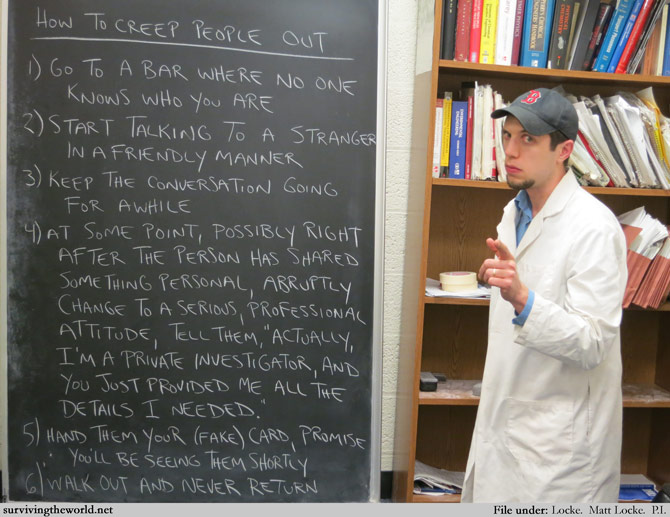 HOW TO CREEP PEOPLE OUT
1) GO TO A BAR WHERE NO ONE
KNOWS WHO YOU ARE
2) START TALKING TO A STRANGER
IN A FRIENDLY MANNER
3) KEEP THE CONVERSATION GOING
FOR AWHILE
4) AT SOME POINT, POSSIBLY RIGHT
AFTER THE PERSON HAS SHARED
SOMETHING PERSONAL, ABRUPTLY
CHANGE TO A SERIOUS, PROFESSIONAL
ATTITUDE, TELL THEM, "ACTUALLY,
I'M A PRIVATE INVESTIGATOR, AND
YOU JUST PROVIDED ME ALL THE
DETAILS I NEEDED."
5) HAND THEM YOUR (FAKE) CARD, PROMISE
YOU'LL BE SEEING THEM SHORTLY
6) WALK OUT AND NEVER RETURN
B
survivingtheworld.net
File under: Locke. Matt Locke. P.I.